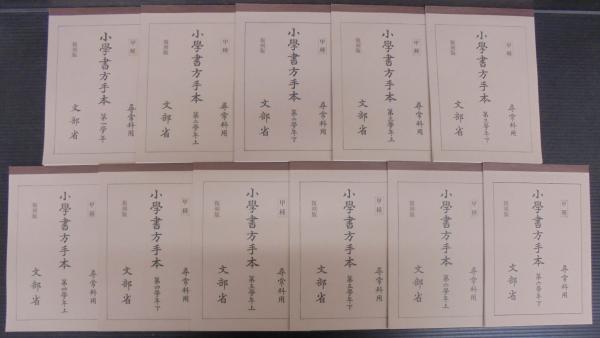 甲種
尋常科用
小學書方手本 第一學年
復刻版
文部省
甲種
尋常科用
小學書方手本 第二學年上
復刻版
文部省
甲種
尋常科用
小學書方手本 第二學年下
復刻版
文部省
甲種
尋常科用
小學書方手本 第三學年上
復刻版
文部省
甲種
尋常科用
小學書方手本 第三學年下
復刻版
文部省
甲種
尋常科用
小學書方手本 第四學年上
復刻版
文部省
甲種
尋常科用
小學書方手本 第四學年下
復刻版
文部省
甲種
尋常科用
小學書方手本 第五學年上
復刻版
文部省
甲種
尋常科用
小學書方手本 第五學年下
復刻版
文部省
甲種
尋常科用
小學書方手本 第六學年上
復刻版
文部省
甲種
尋常科用
小學書方手本 第六學年下
復刻版
文部省